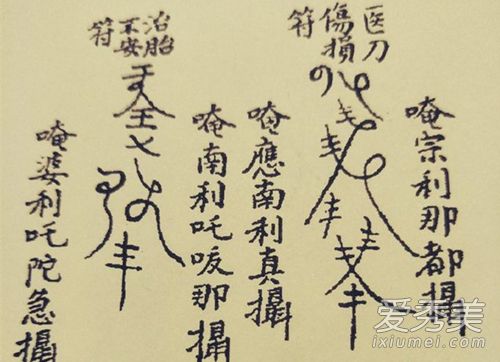 唵宗利那都攝
医刀
傷損
符
唵應南利真攝
唵南利吒那攝
治胎
不安
符
唵婆利吒陀急攝
爱秀美
ixiumei.com